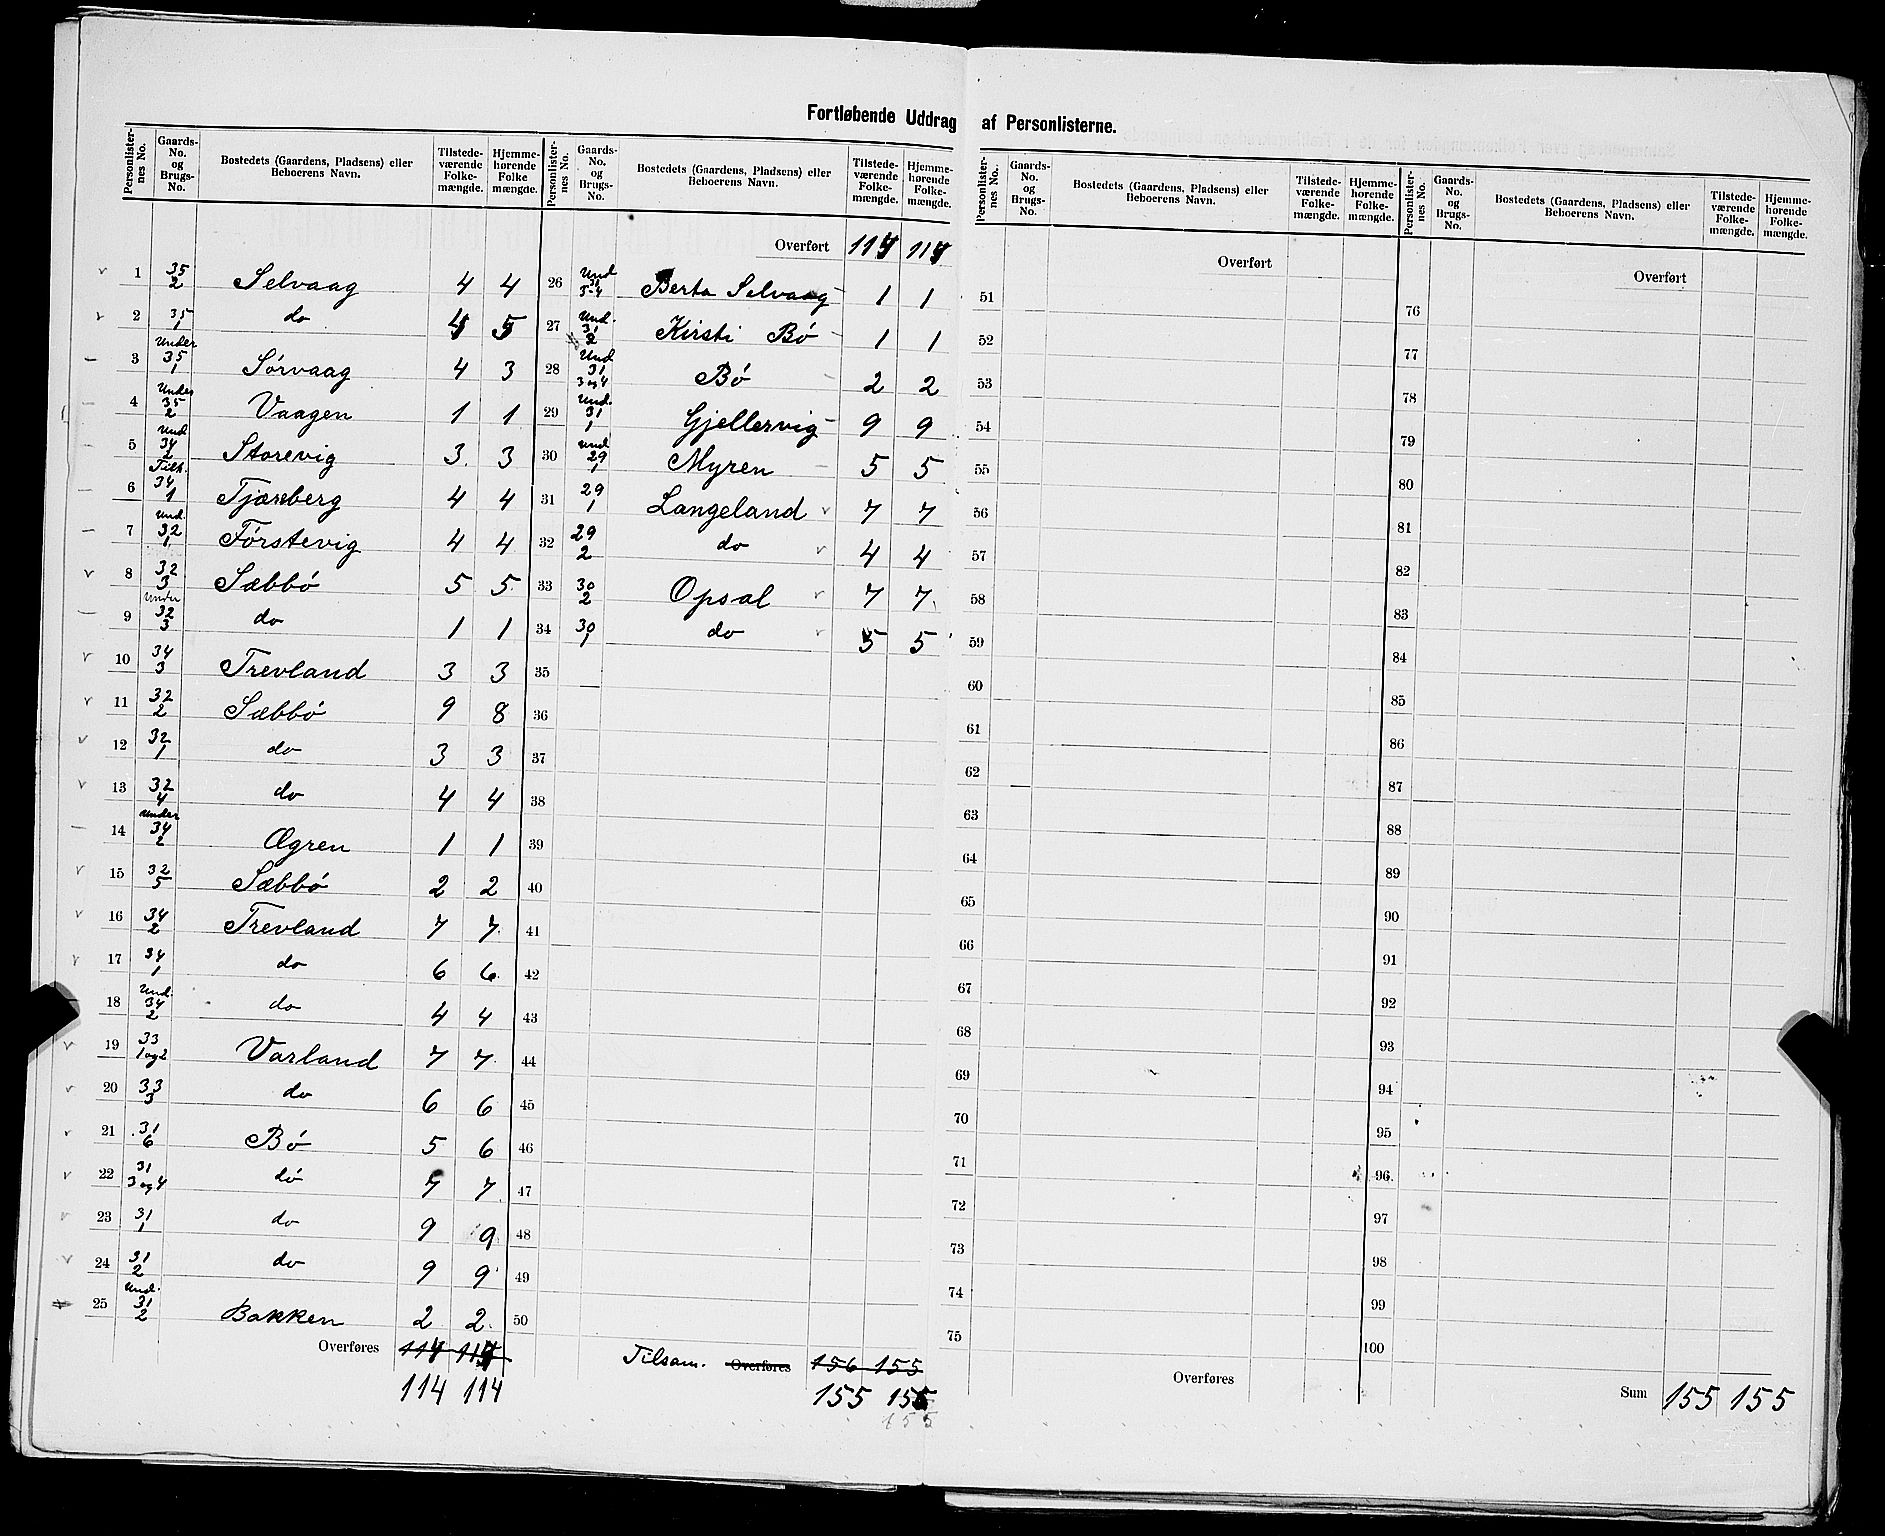 Fortløbende Uddrag af Personlisterne.
Personlisternes No. Gaards-No. og Brugs-No. Bostedets (Gaardens, Pladsens) eller Beboerens Navn. Tilstedeværende Folkemængde. Hjemmehørende Folke mængde.
1 35 2 Selvaag 4 4
2 35 1 do 4 5
3 Under 35 1 Sørvaag 4 3
4 Under 35 2 Vaagen 1 1
5 Und 34 2 Storevig 3. 3
6 Tilh. 34 1 Tjærberg 4 4
7 Und. 32 1 Førstevig 4 4
8 32 3 Sæbbø 5 5.
9 Under 32 3 do 1 1
10 34 3 Trevland 3 3
11 32 2 Sæbbø 9 8
12 32 1 do 3 3
13 32 4 do 4 4
14 Under 34 2 Øgren 1 1
15 32 5 Sæbbø 2 2
16 34 2 Trevland 7 7.
17 34 1 do 6 6.
18 Und. 34 2 do 4 4
19 33 1 og 2 Varland 7 7.
20 33 3 do 6 6
21 31 6 Bø 5 6
22 31 3 og 4 do 7 7.
23 31 1 do 9 9
24 31 2 do 9 9
25 Und. 31 2 Bakken 2 2.
Overføres
114 114
Personlisternes No. Gaards-No. og Brugs-No. Bostedets (Gaardens, Pladsens) eller Beboerens Navn. Tilstedeværende Folkemængde. Hjemmehørende Folkemængde.
Overført 114 114
26 Und 31 3-4 Berta Selvaag 1 1
27 Und. 31 2 Kirsti Bø 1 1
28 Und 31 3 og 4 Bø 2 2
29 Und. 31 1 Gjellervig 9 9
30 Und 29 1 Myren 5 5
31 29 1 Langeland 7 7
32 29 2 do 4 4
33 30 2 Opsal 7 7.
34 30 1 do 5 5
35
36
37
38
39
40
41
42
43
44
45
46
47
48
49
50
Tilsam. Overføres 156 155
155 155
155
Personlisternes No. Gaards-No. og Brugs-No. Bostedets (Gaardens, Pladsens) eller Beboerens Navn. Tilstedeværende Folkemængde. Hjemmehørende Folkemængde.
Overført
51
52
53
54
55
56
57
58
59
60
61
62
63
64
65
66
67
68
69
70
71
72
73
74
75
Overføres
Personlisternes No. Gaards-No. og Brugs-No. Bostedets (Gaardens, Pladsens) eller Beboerens Navn. Tilstedeværende Folkemængde. Hjemmehørende Folkemængde.
Overført
76
77
78
79
80
81
82
83
84
85
86
87
88
89
90
91
92
93
94
95
96
97
98
99
100
Sum 155 155